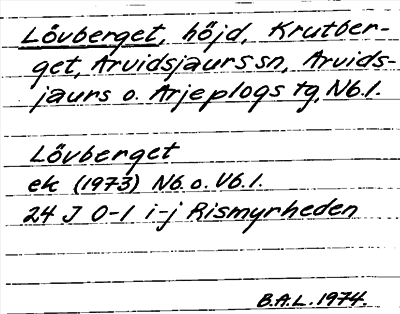 Lövberget, höjd, Krutber-
get, Arvidsjaurs sn, Arvids-
jaurs o. Arjeplogs tg, Nb. l.
Lövberget
ek (1973) Nb. o. Vb. l.
24 J 0-1 i-j Rismyrheden
B.A.L. 1974.